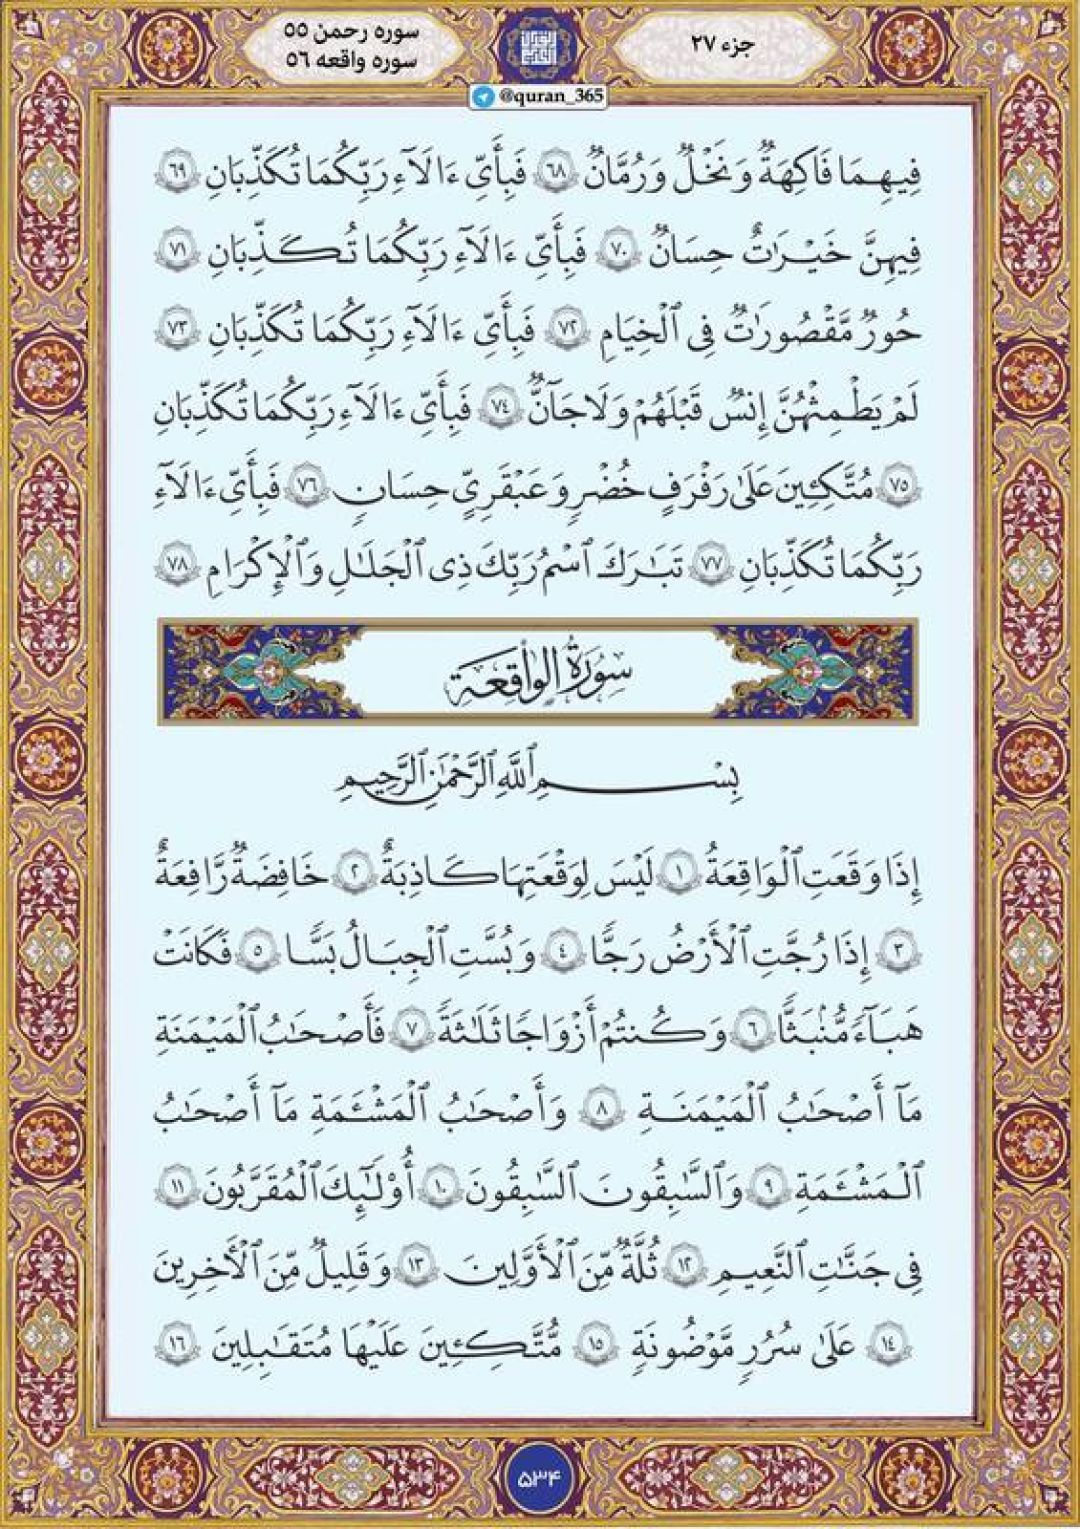 سوره رحمن ۵۵
سوره واقعه ۵۶
جزء ۲۷
@quran_365
فِيهِمَا فَاكِهَةٌ وَنَخْلٌ وَرُمَّانٌ ٦٨ فَبِأَيِّ ءَالَآءِ رَبِّكُمَا تُكَذِّبَانِ ٦٩
فِيهِنَّ خَيْرَٰتٌ حِسَانٌ ٧٠ فَبِأَيِّ ءَالَآءِ رَبِّكُمَا تُكَذِّبَانِ ٧١
حُورٌ مَّقْصُورَٰتٌ فِى ٱلْخِيَامِ ٧٢ فَبِأَيِّ ءَالَآءِ رَبِّكُمَا تُكَذِّبَانِ ٧٣
لَمْ يَطْمِثْهُنَّ إِنسٌ قَبْلَهُمْ وَلَا جَآنٌّ ٧٤ فَبِأَيِّ ءَالَآءِ رَبِّكُمَا تُكَذِّبَانِ
٧٥ مُتَّكِـِٔينَ عَلَىٰ رَفْرَفٍ خُضْرٍ وَعَبْقَرِيٍّ حِسَانٍ ٧٦ فَبِأَيِّ ءَالَآءِ
رَبِّكُمَا تُكَذِّبَانِ ٧٧ تَبَٰرَكَ ٱسْمُ رَبِّكَ ذِى ٱلْجَلَٰلِ وَٱلْإِكْرَامِ ٧٨
سُورَةُ الوَاقِعَة
بِسْمِ ٱللَّهِ ٱلرَّحْمَٰنِ ٱلرَّحِيمِ
إِذَا وَقَعَتِ ٱلْوَاقِعَةُ ١ لَيْسَ لِوَقْعَتِهَا كَاذِبَةٌ ٢ خَافِضَةٌ رَّافِعَةٌ
٣ إِذَا رُجَّتِ ٱلْأَرْضُ رَجًّا ٤ وَبُسَّتِ ٱلْجِبَالُ بَسًّا ٥ فَكَانَتْ
هَبَآءً مُّنۢبَثًّا ٦ وَكُنتُمْ أَزْوَٰجًا ثَلَٰثَةً ٧ فَأَصْحَٰبُ ٱلْمَيْمَنَةِ
مَآ أَصْحَٰبُ ٱلْمَيْمَنَةِ ٨ وَأَصْحَٰبُ ٱلْمَشْـَٔمَةِ مَآ أَصْحَٰبُ
ٱلْمَشْـَٔمَةِ ٩ وَٱلسَّٰبِقُونَ ٱلسَّٰبِقُونَ ١٠ أُو۟لَٰٓئِكَ ٱلْمُقَرَّبُونَ ١١
فِى جَنَّٰتِ ٱلنَّعِيمِ ١٢ ثُلَّةٌ مِّنَ ٱلْأَوَّلِينَ ١٣ وَقَلِيلٌ مِّنَ ٱلْـَٔاخِرِينَ
١٤ عَلَىٰ سُرُرٍ مَّوْضُونَةٍ ١٥ مُّتَّكِـِٔينَ عَلَيْهَا مُتَقَٰبِلِينَ ١٦
۵۳۴